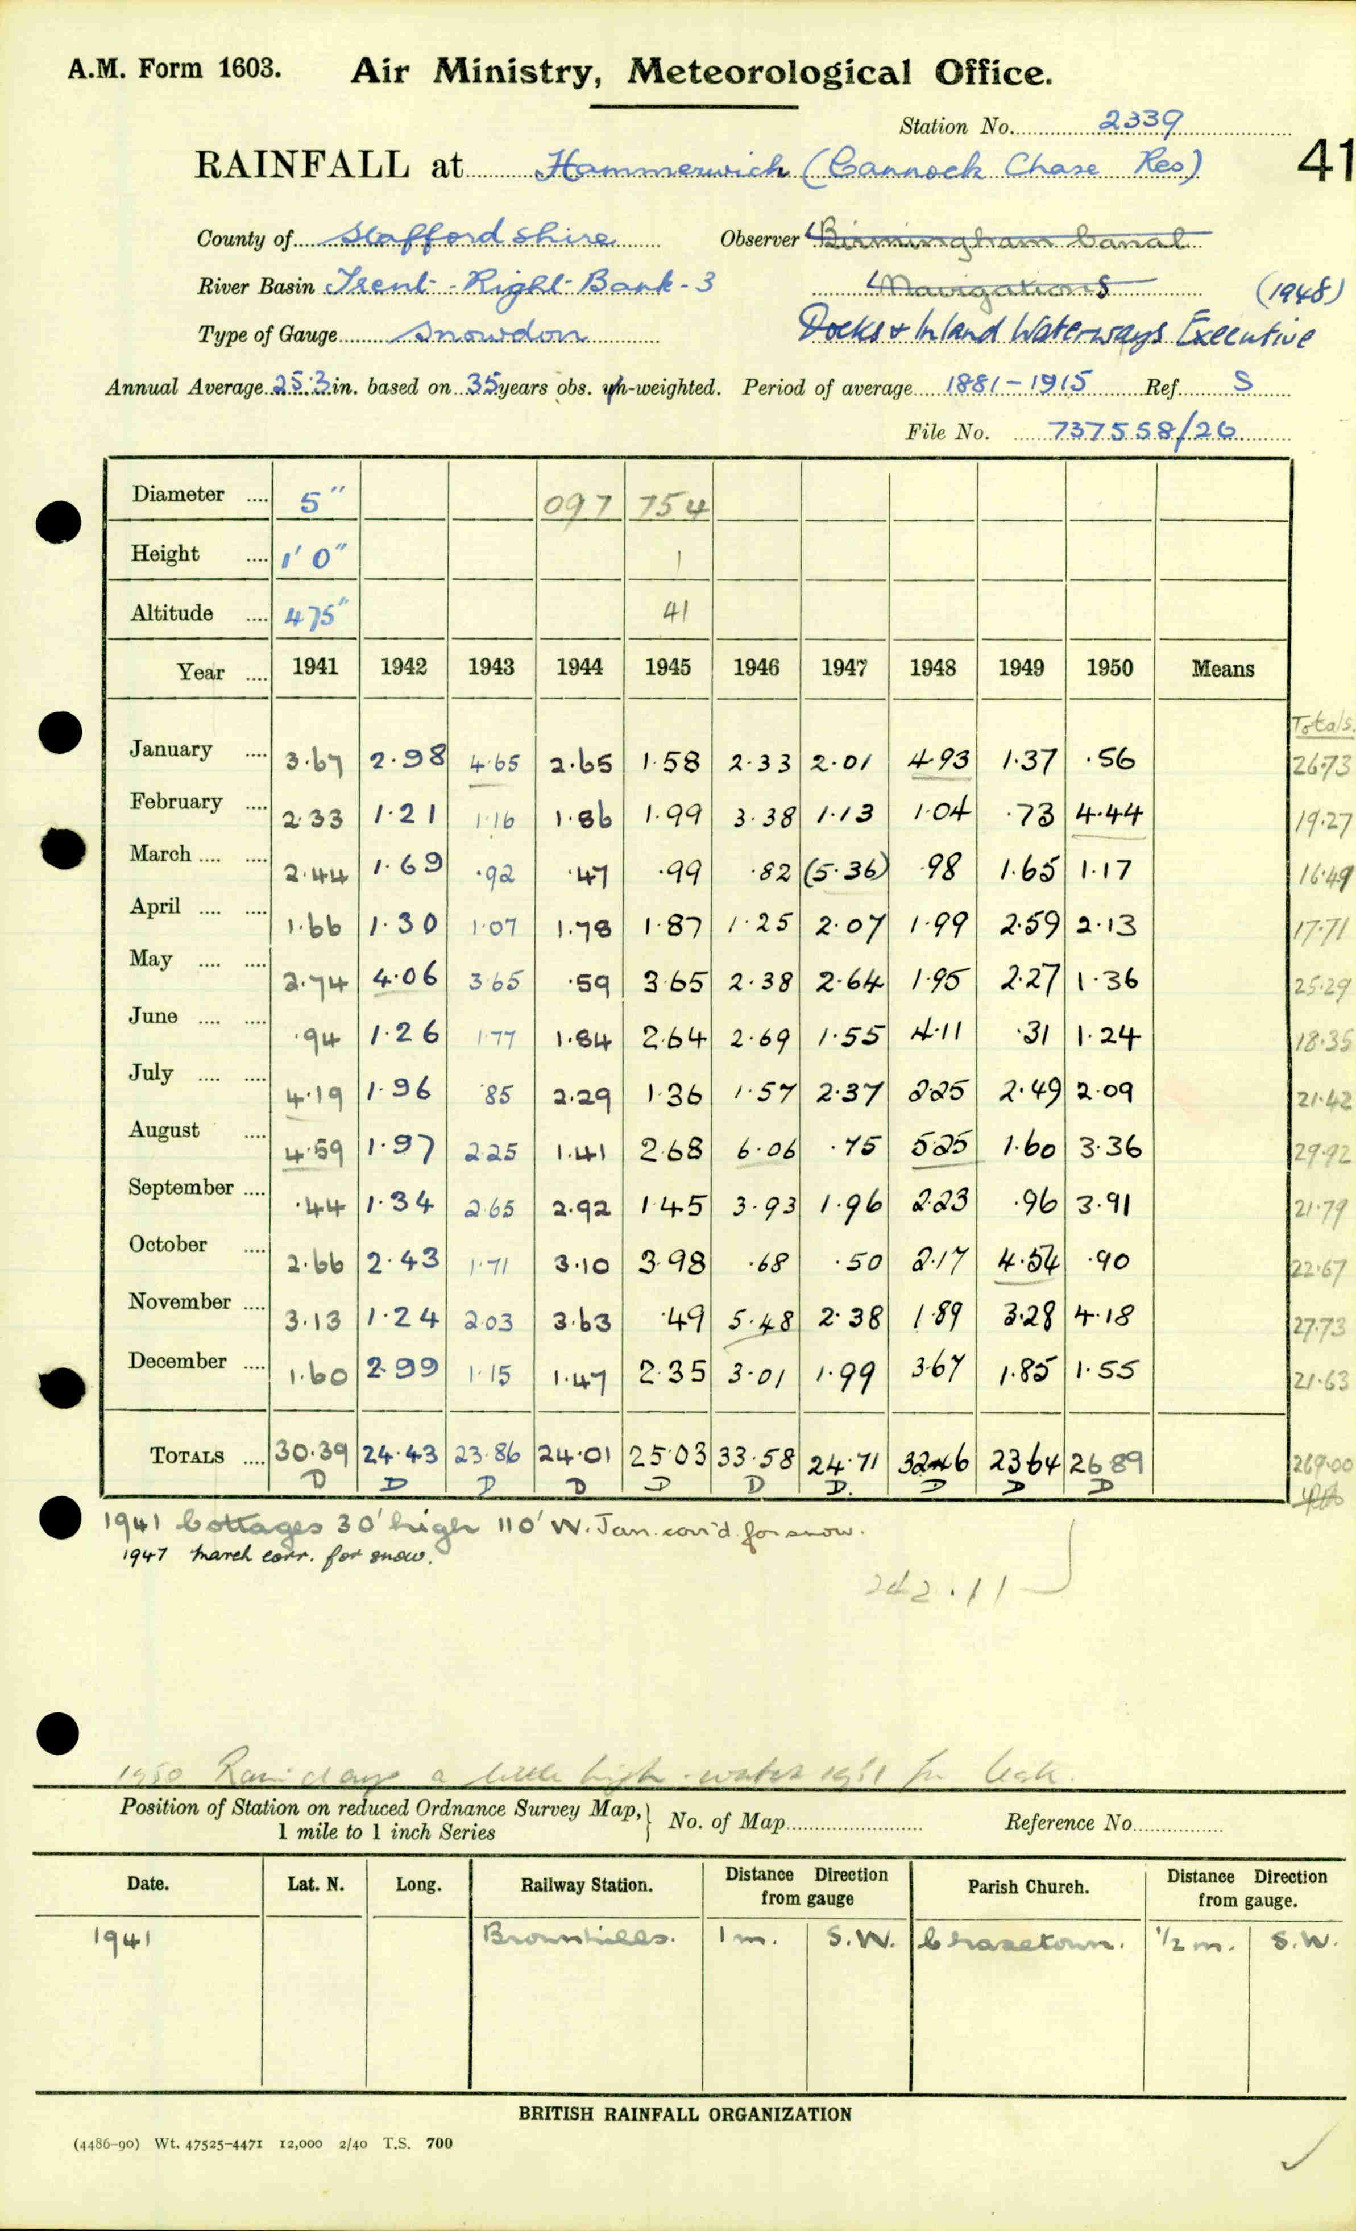 A.M. Form 1603. Air Ministry, Meteorological Office.
Station No. 2339
41
RAINFALL at Hammerwich (Cannock Chase Res)
County of Staffordshire Observer Birmingham Canal
River Basin Trent - Right - Bank - 3 Navigations (1948)
Type of Gauge Snowdon Docks & Inland Waterways Executive
Annual Average 25.3 in. based on 35 years obs. un-weighted. Period of average 1881-1915 Ref. S
File No. 737558/26
Diameter .... 5" 097 754
Height .... 1' 0" 1
Altitude .... 475" 41
Year .... 1941 1942 1943 1944 1945 1946 1947 1948 1949 1950 Means
Totals.
January .... 3.67 2.98 4.65 2.65 1.58 2.33 2.01 4.93 1.37 .56 26.73
February .... 2.33 1.21 1.16 1.86 1.99 3.38 1.13 1.04 .73 4.44 19.27
March .... .... 2.44 1.69 .92 .47 .99 .82 (5.36) .98 1.65 1.17 16.49
April .... .... 1.66 1.30 1.07 1.78 1.87 1.25 2.07 1.99 2.59 2.13 17.71
May .... .... 2.74 4.06 3.65 .59 3.65 2.38 2.64 1.95 2.27 1.36 25.29
June .... .... .94 1.26 1.77 1.84 2.64 2.69 1.55 4.11 .31 1.24 18.35
July .... .... 4.19 1.96 .85 2.29 1.36 1.57 2.37 2.25 2.49 2.09 21.42
August .... 4.59 1.97 2.25 1.41 2.68 6.06 .75 5.25 1.60 3.36 29.92
September .... .44 1.34 2.65 2.92 1.45 3.93 1.96 2.23 .96 3.91 21.79
October .... 2.66 2.43 1.71 3.10 3.98 .68 .50 2.17 4.54 .90 22.67
November .... 3.13 1.24 2.03 3.63 .49 5.48 2.38 1.89 3.28 4.18 27.73
December .... 1.60 2.99 1.15 1.47 2.35 3.01 1.99 3.67 1.85 1.55 21.63
TOTALS .... 30.39 24.43 23.86 24.01 25.03 33.58 24.71 32.46 23.64 26.89 269.00
D D D D D D D. D D D
1941 Cottages 30' high 110' W. Jan. corr'd. for snow.
1947 March corr. for snow.
242.11
1950 Rain days a little high - water 1951 for leak.
Position of Station on reduced Ordnance Survey Map, 1 mile to 1 inch Series No. of Map Reference No.
Date. Lat. N. Long. Railway Station. Distance Direction from gauge Parish Church. Distance Direction from gauge.
1941 Brownhills. 1 m. S.W. Chasetown. 1/2 m. S.W.
BRITISH RAINFALL ORGANIZATION
(4486-90) Wt. 47525-4471 12,000 2/40 T.S. 700